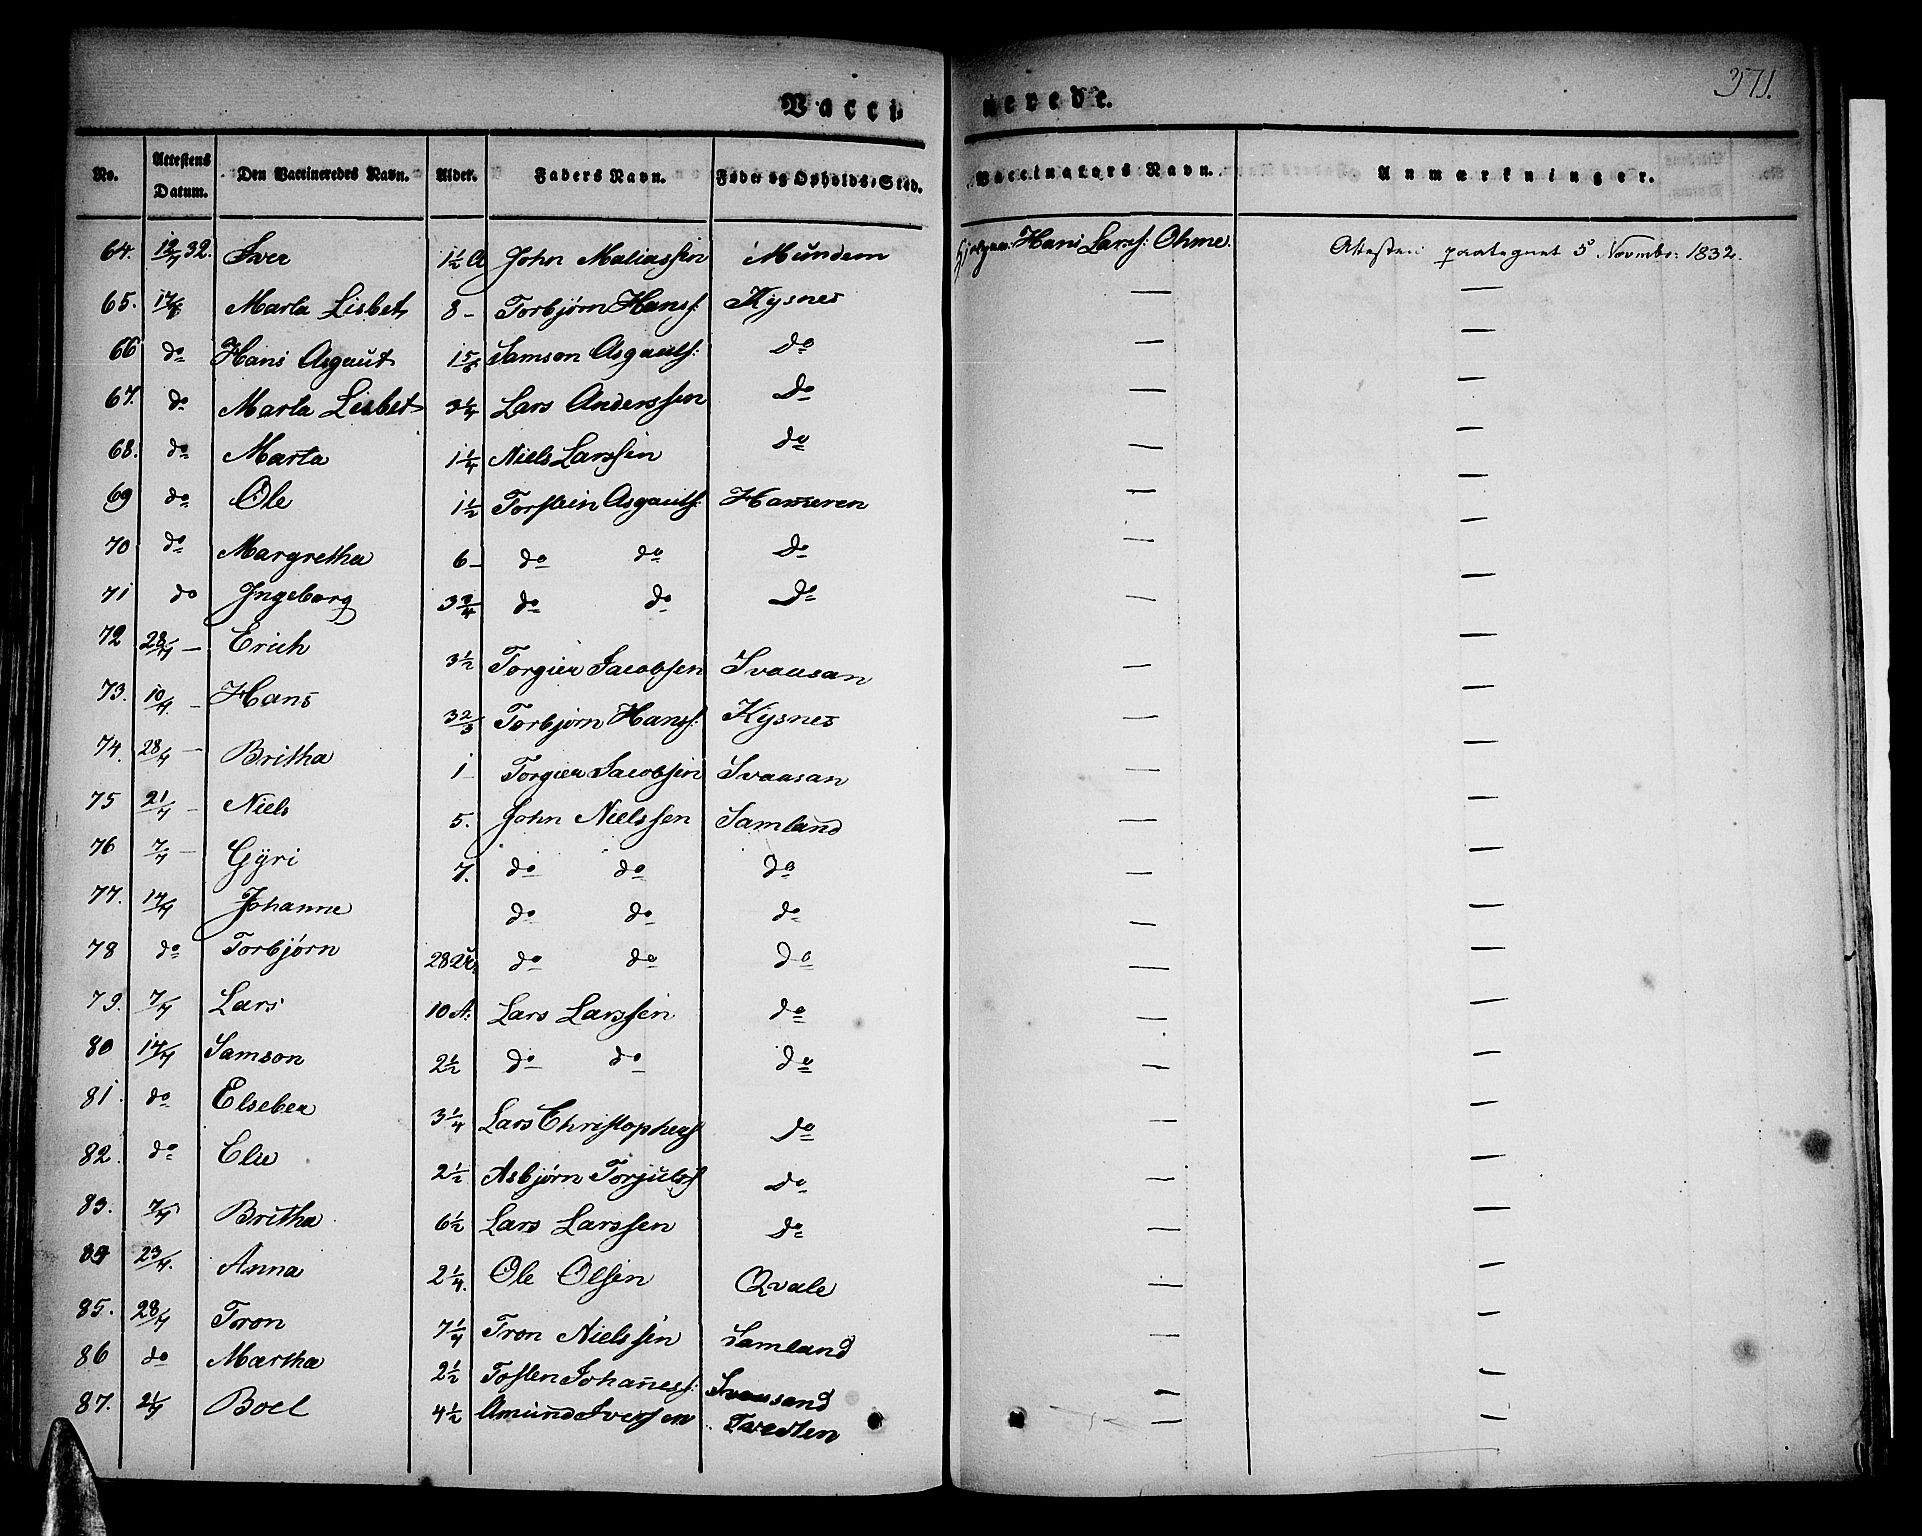 371.
Vaccinerede.
No. Attestens Datum. Den Vaccineredes Navn. Alder. Faders Navn. Føde- og Opholds-Sted. Vaccinators Navn. Anmærkninger.
64. 12/7 32. Iver 1½ A John Maliassen Mundem Hans Larss: Ohme. Attesten paategnet 5te Novmbr: 1832.
65. 14/8 Marta Lisbet 8 - Torbjørn Hanss: Kysnes — —
66 do Hans Asgaut 1 5/6 Samson Asgauts: do — —
67. do Marta Lisbet 3¼ Lars Anderssen Do — —
68. do Marta 1¼ Niels Larssen do — —
69 do Ole 1½ Torstein Asgauts: Hameren — —
70 do Margretha 6 - do do Do — —
71 do Ingeborg 3¾ do do Do — —
72 28/7 — Erich 3½ Torgier Jacobsen Svaasan — —
73. 10/7. - Hans 3⅔ Torbjørn Hanss: Kysnes — —
74. 28/7 — Britha 1 Torgier Jacobsen Svaasan — —
75 21/7 - Niels 5. John Nielssen Samland — —
76 7/7 — Gÿri 7. do do do — —
77. 14/7 Johanne do do do — —
78 do Torbjørn 28 do do do — —
79. 7/7 Lars 10 A: Lars Larssen do — —
80 14/7 Samson 2½ do do do — —
81. do Elseber 3¼ Lars Christophers do — —
82. do Elie 2½ Asbjørn Torjulss do — —
83. 7/7 Britha 6½ Lars Larssen do — —
84 23/7. Anna 2¼. Ole Olsen Qvale — —
85. 28/7 Tron 7¼ Tron Nielssen Samland — —
86 do Martha 2½ Tosten Johaness: Svaasand — —
87. 21/7 Boel 4½ Amund Iverssen Tvedten — —